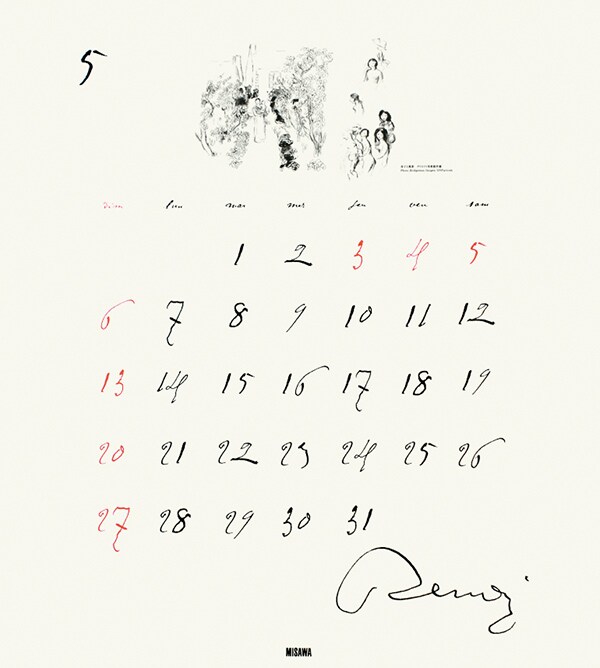 5
dim lun mar mer jeu ven sam
1 2 3 4 5
6 7 8 9 10 11 12
13 14 15 16 17 18 19
20 21 22 23 24 25 26
27 28 29 30 31
Renoir
MISAWA